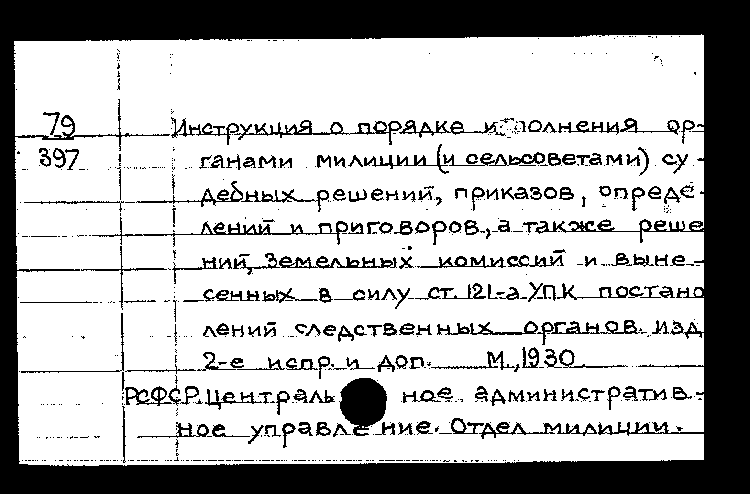 79
397
Инструкция о порядке исполнения ор-
ганами милиции (и сельсоветами) су-
дебных решений, приказов, опреде-
лений и приговоров, а также реше
ний, земельных комиссий и выне-
сенных в силу ст. 121-а УПК постано
лений следственных органов. изд
2-е испр. и доп. М., 1930
РСФСР. Централь ное административ-
ное управле ние. Отдел милиции.